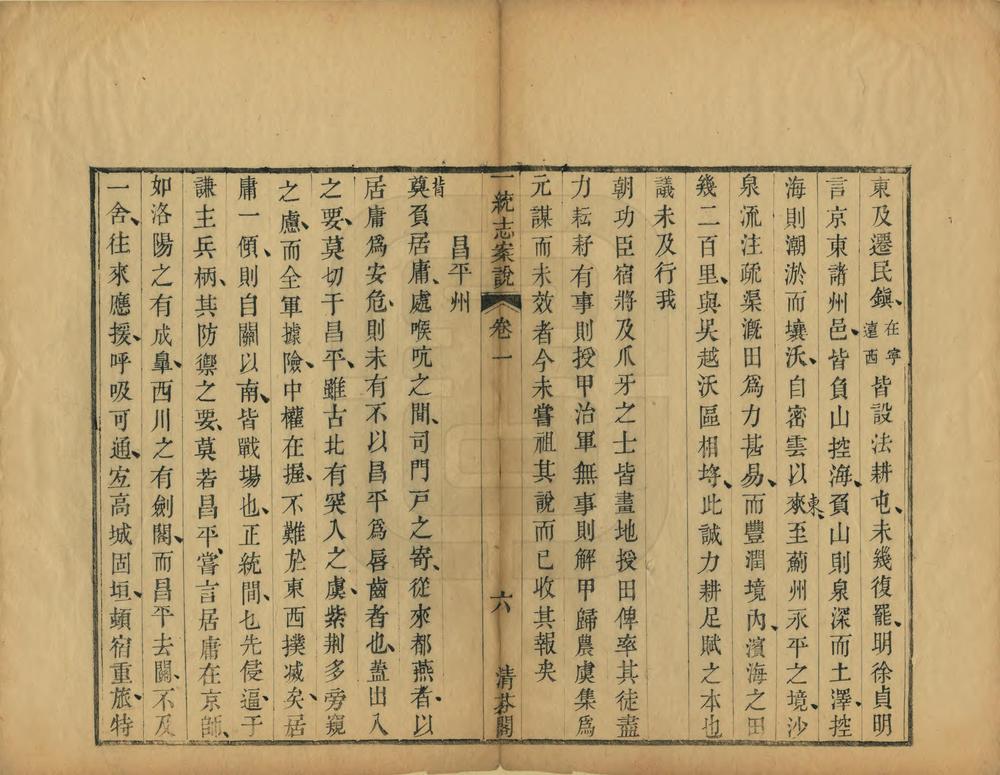 東及遷民鎮在寧遠西皆設法耕屯未幾復罷明徐貞明
言京東諸州邑皆負山控海負山則泉深而土澤控
海則潮淤而壤沃自密雲以東來至薊州永平之境沙
泉流注疏渠漑田為力甚易而豐潤境內濱海之田
幾二百里與吳越沃區相埒此誠力耕足賦之本也
議未及行我
朝功臣宿將及爪牙之士皆畫地授田俾率其徒盡
力耘耔有事則授甲治軍無事則解甲歸農虞集為
元謀而未效者今未嘗祖其說而已收其報矣
一統志案說 卷一 六 清芬閣
昌平州
背
奠負居庸處喉吭之間司門戸之寄從來都燕者以
居庸為安危則未有不以昌平為唇齒者也蓋出入
之要莫切于昌平雖古北有突入之虞紫荆多旁窺
之慮而全軍據險中權在握不難於東西撲滅矣居
庸一傾則自關以南皆戰場也正統間乜先侵逼于
謙主兵柄其防禦之要莫若昌平嘗言居庸在京師
如洛陽之有成皐西川之有劍閣而昌平去關不及
一舍往來應援呼吸可通宐高城固垣頓宿重旅特